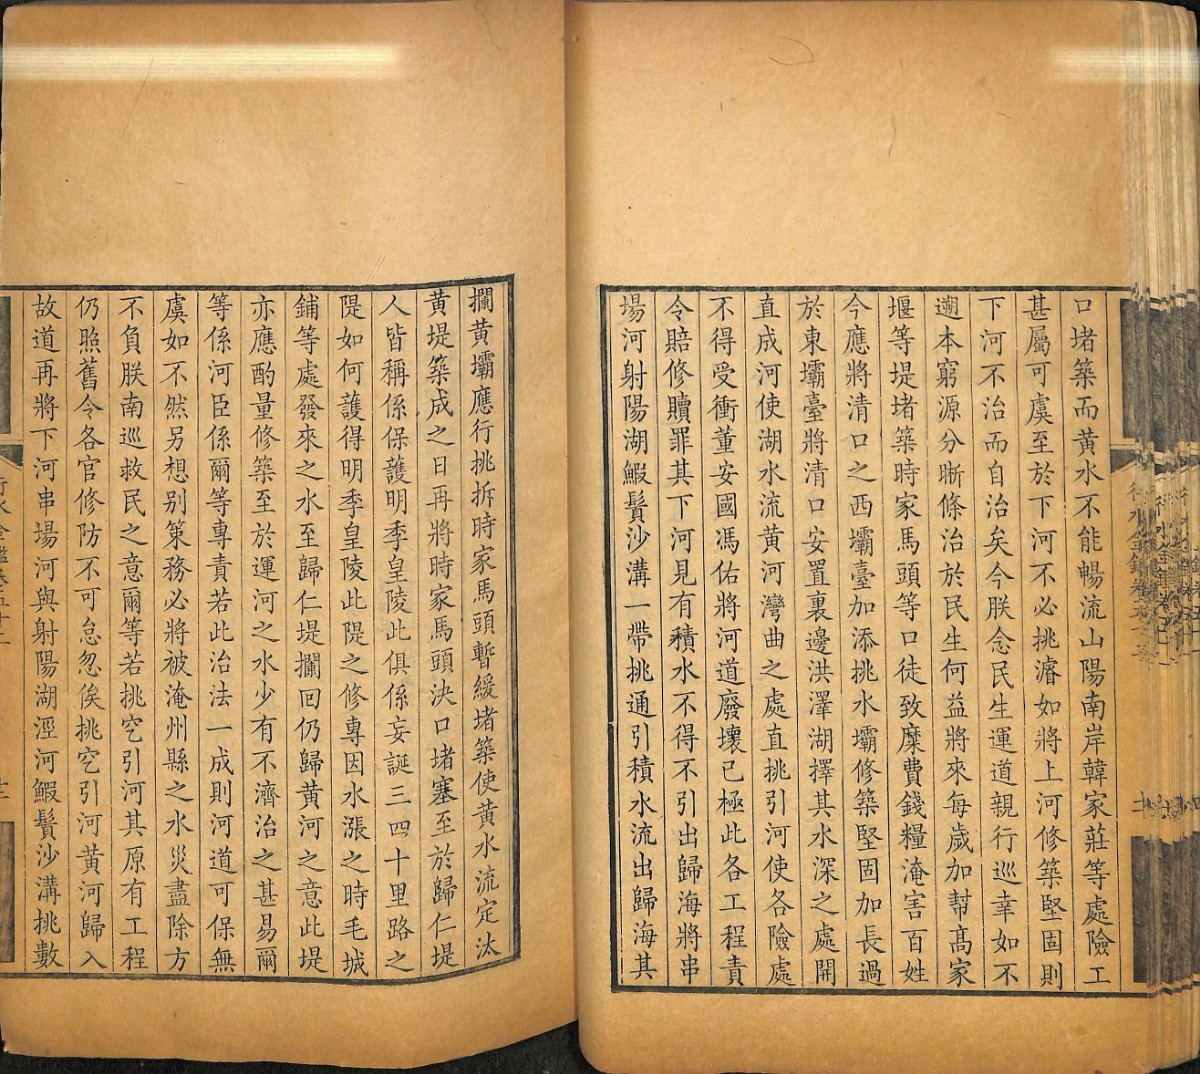 口堵築而黃水不能暢流山陽南岸韓家莊等處險工
甚屬可虞至於下河不必挑濬如將上河修築堅固則
下河不治而自治矣今朕念民生運道親行巡幸如不
遡本窮源分晰條治於民生何益將來每歲加幇髙家
堰等堤堵築時家馬頭等口徒致糜費錢糧淹害百姓
今應將清口之西壩臺加添挑水壩修築堅固加長過
於東壩臺將清口安置裏邊洪澤湖擇其水深之處開
直成河使湖水流黃河灣曲之處直挑引河使各險處
不得受衝董安國馮佑將河道廢壞已極此各工程責
令賠修贖罪其下河見有積水不得不引出歸海將串
場河射陽湖鰕鬚沙溝一帶挑通引積水流出歸海其
攔黃壩應行挑拆時家馬頭暫緩堵築使黃水流定汰
黃堤築成之日再將時家馬頭決口堵塞至於歸仁堤
人皆稱係保護明季皇陵此俱係妄誕三四十里路之
隄如何護得明季皇陵此隄之修專因水漲之時毛城
鋪等處發來之水至歸仁堤攔囘仍歸黃河之意此堤
亦應酌量修築至於運河之水少有不濟治之甚易爾
等係河臣係爾等專責若此治法一成則河道可保無
虞如不然另想别策務必將被淹州縣之水災盡除方
不負朕南巡救民之意爾等若挑穵引河其原有工程
仍照舊令各官修防不可怠忽俟挑穵引河黃河歸入
故道再將下河串場河與射陽湖涇河鰕鬚沙溝挑數